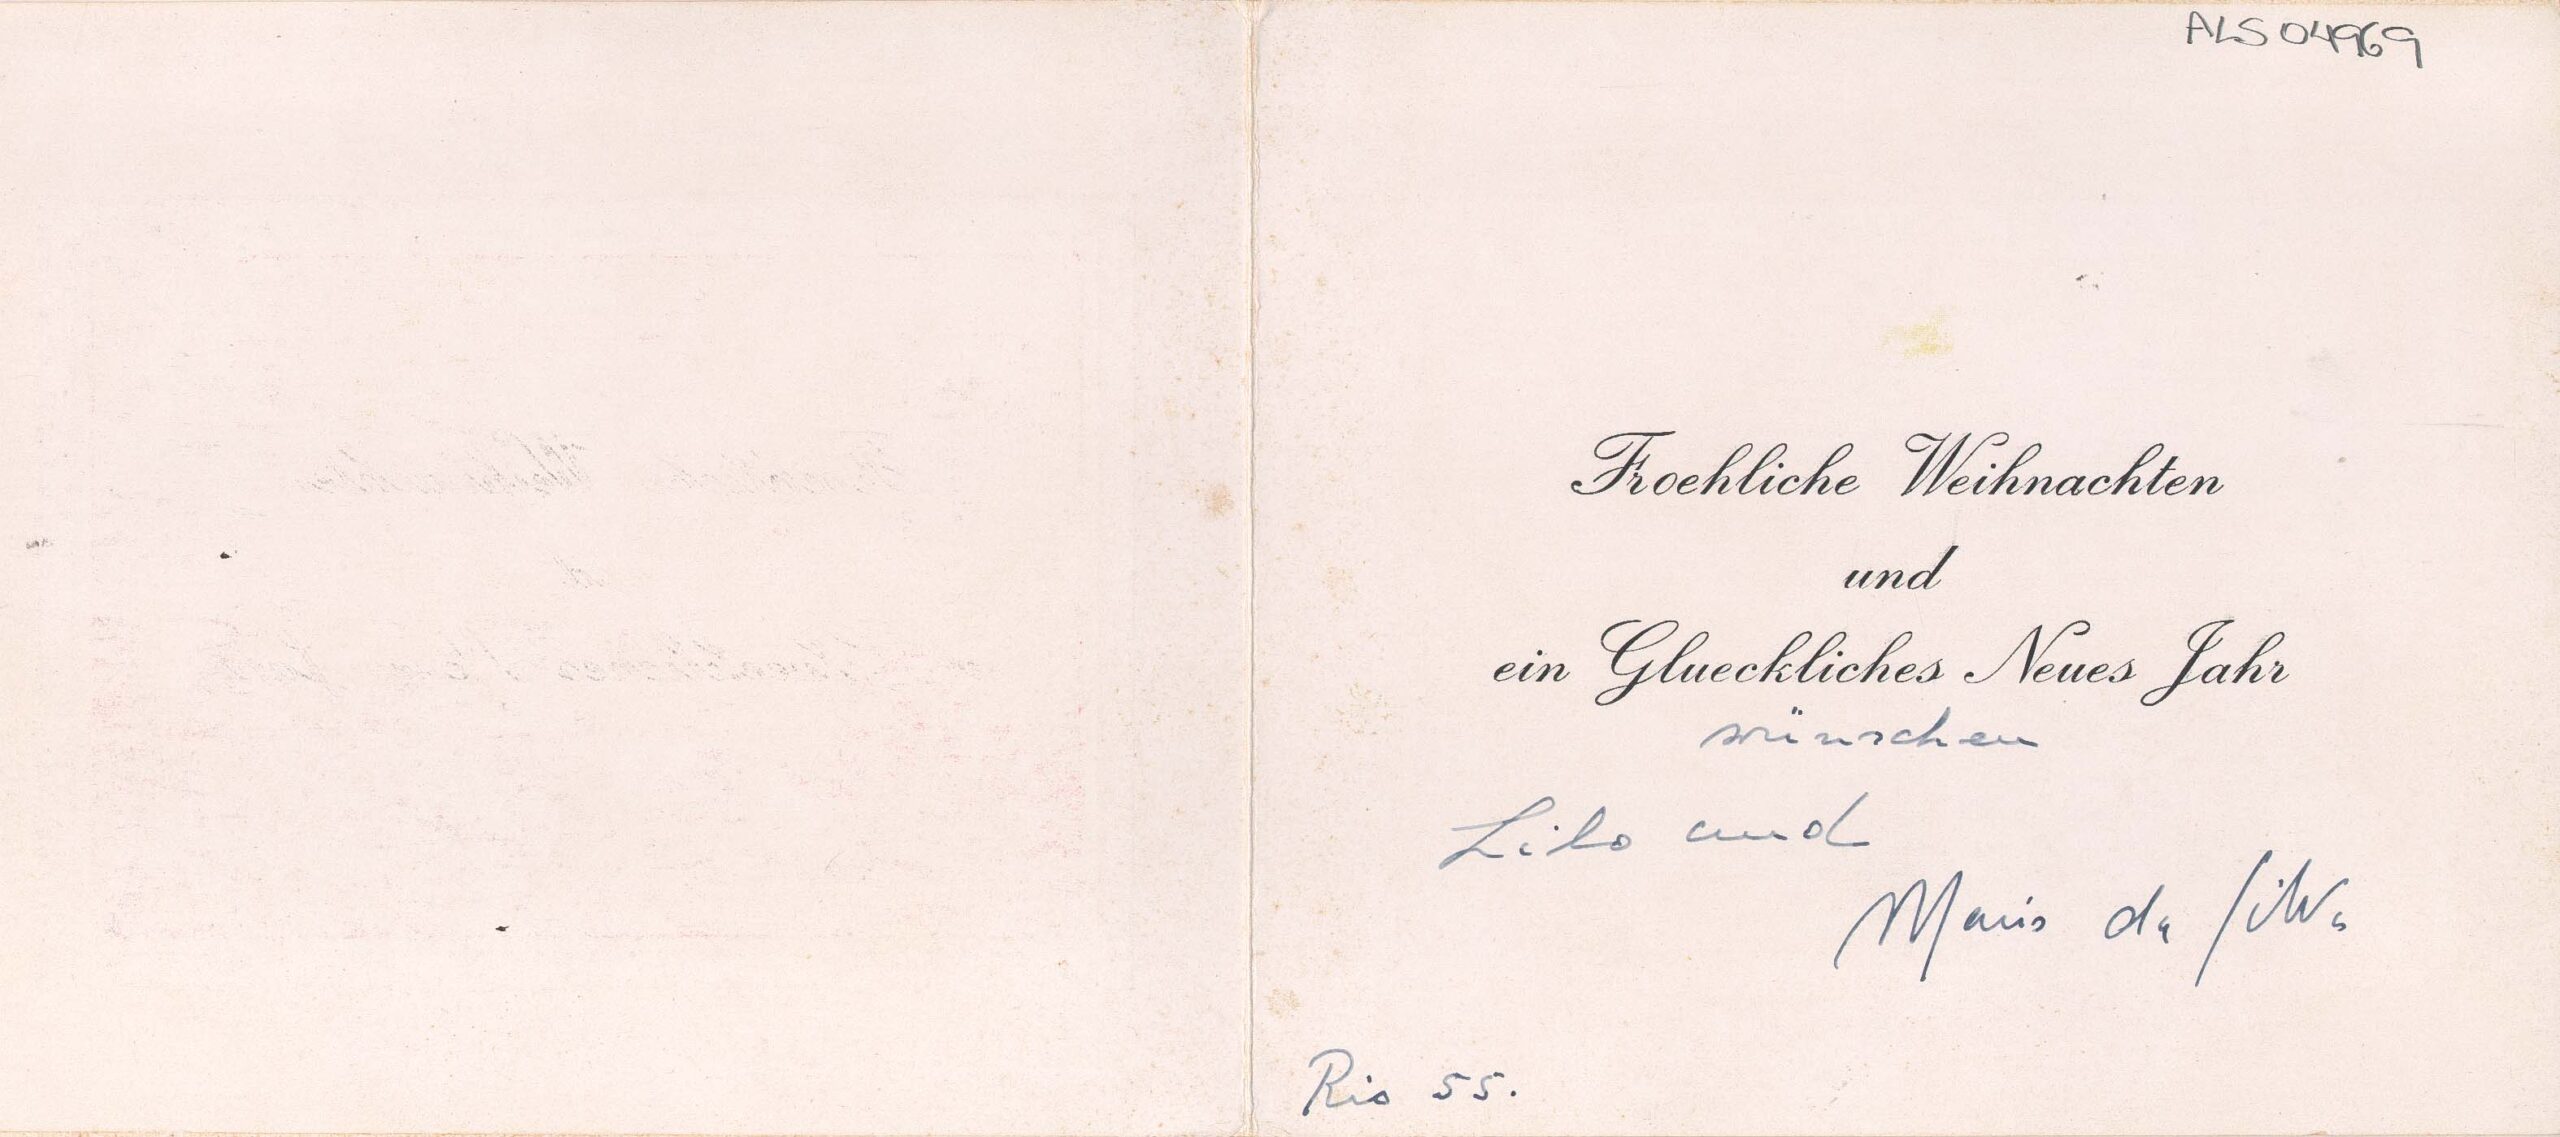 ALS 04969
Froehliche Weihnachten
und
ein Glueckliches Neues Jahr
wünschen
Lilo und
Mario da Silva
Rio 55.